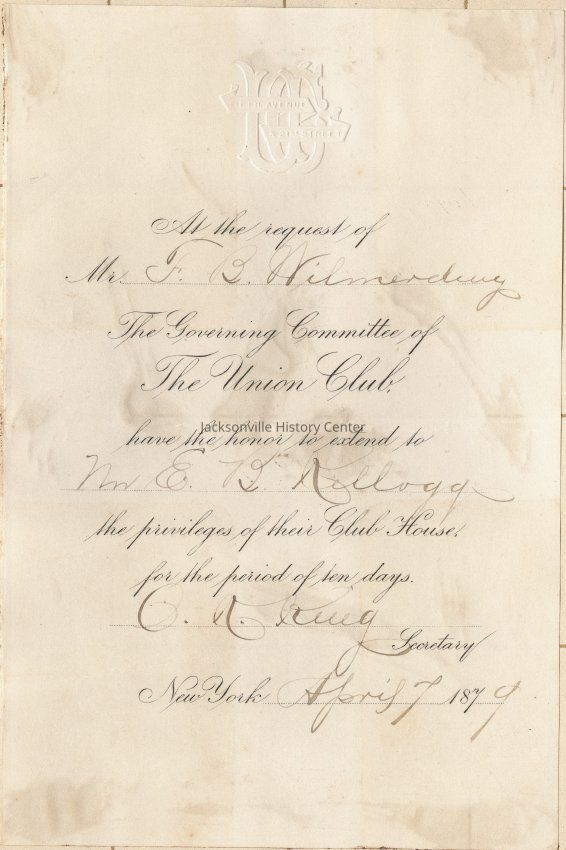 FIFTH AVENUE
& 21ST STREET
At the request of
Mr. F. B. Wilmerding
The Governing Committee of
The Union Club,
Jacksonville History Center
have the honor to extend to
Mr E. B. Kellogg
the privileges of their Club House.
for the period of ten days.
King
Secretary
New York April 7 1879